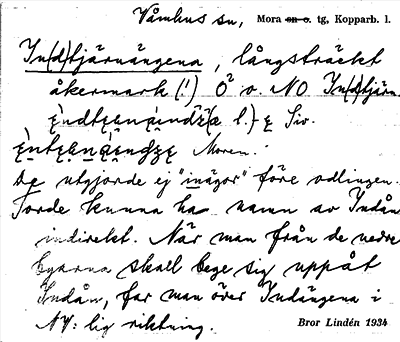 Våmhus sn, Mora tg, Kopparb. l.
In(d)tjärnängena, långsträckt
åkermark (!) O² o. NO In(d)tjärn
l.) Siv.
Moren.
De utgjorde ej "inägor" före odlingen.
Torde kunna ha namn av Indån
indirekt. När man från de nedre
byarna skall bege sig uppåt
Indån, far man över Indängena i
NV:lig riktning.
Bror Lindén 1934